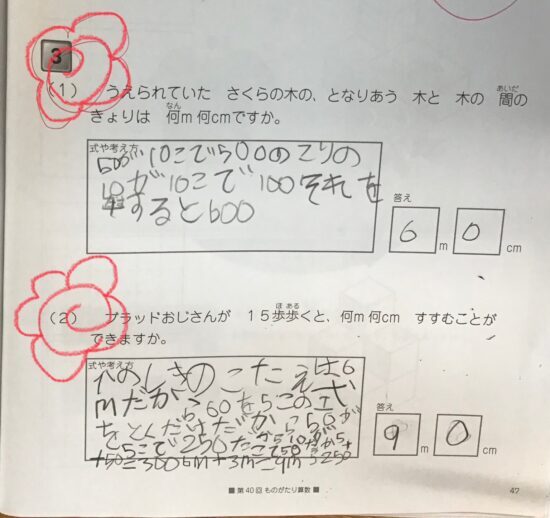 3
(1) うえられていた さくらの木の、となりあう 木と 木の 間のあいだ
きょりは 何mなん 何cmですか。
式や考え方
500が10こで500のこりの
10が10こで100それを
するとb00
答え
6 m 0 cm
(2) ブラッドおじさんが 15歩歩くとほある、何m何cm すすむことが
できますか。
式や考え方
のしきのこたえは6
mだから60を5この式
をとんだけだから50が
5こで250だから10が5
+50=300 6m+3m=9m
答え
9 m 0 cm
■ 第40回 ものがたり算数 ■
47